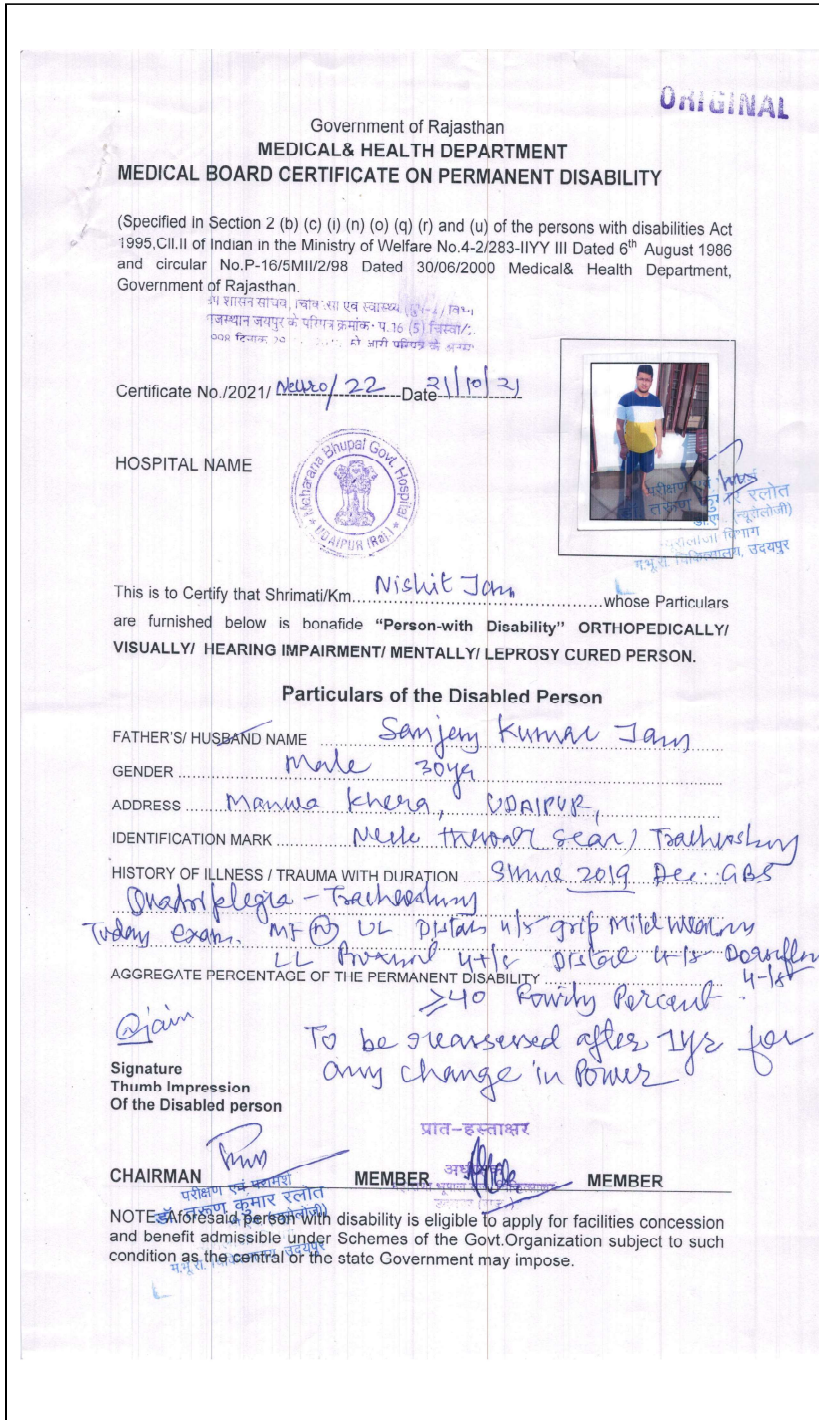 ORIGINAL
Government of Rajasthan
MEDICAL& HEALTH DEPARTMENT
MEDICAL BOARD CERTIFICATE ON PERMANENT DISABILITY
(Specified in Section 2 (b) (c) (i) (n) (o) (q) (r) and (u) of the persons with disabilities Act
1995,CII.II of Indian in the Ministry of Welfare No.4-2/283-IIYY III Dated 6th August 1986
and circular No.P-16/5MII/2/98 Dated 30/06/2000 Medical& Health Department,
Government of Rajasthan.
शासन सचिव, एवं स्वास्थ्य
जयपुर के परिपत्र क्रमांक प.16 (5)
जारी परिपत्र के
Certificate No./2021/ Neuro/22 Date 21/10/21
HOSPITAL NAME
Maharana Bhupal Govt. Hospital
UDAIPUR (Raj.)
परीक्षण एवं
तरूण कुमार रलोत
(न्यूरोलोजी)
विभाग
म.भू.रा. चिकित्सालय, उदयपुर
This is to Certify that Shrimati/Km. Nishit Jain whose Particulars
are furnished below is bonafide "Person-with Disability" ORTHOPEDICALLY/
VISUALLY/ HEARING IMPAIRMENT/ MENTALLY/ LEPROSY CURED PERSON.
Particulars of the Disabled Person
FATHER'S/ HUSBAND NAME Sanjay Kumar Jain
GENDER Male 30yr
ADDRESS Manwa Khera, UDAIPUR,
IDENTIFICATION MARK Scar Tracheostomy
HISTORY OF ILLNESS / TRAUMA WITH DURATION Since 2019 Dec. GBS
Quadriplegia - Tracheostomy
Today exam. UL Distal 4/5 grip Mild
LL Proximal 4+/5 Distal 4-/5
AGGREGATE PERCENTAGE OF THE PERMANENT DISABILITY 4-/5
≥40 Percent
Jain To be reassessed after 1yr for
any change in Power
Signature
Thumb Impression
Of the Disabled person
CHAIRMAN MEMBER MEMBER
परीक्षण एवं परामर्श
डॉ. तरूण कुमार रलोत
NOTE Aforesaid person with disability is eligible to apply for facilities concession
and benefit admissible under Schemes of the Govt.Organization subject to such
condition as the central or the state Government may impose.